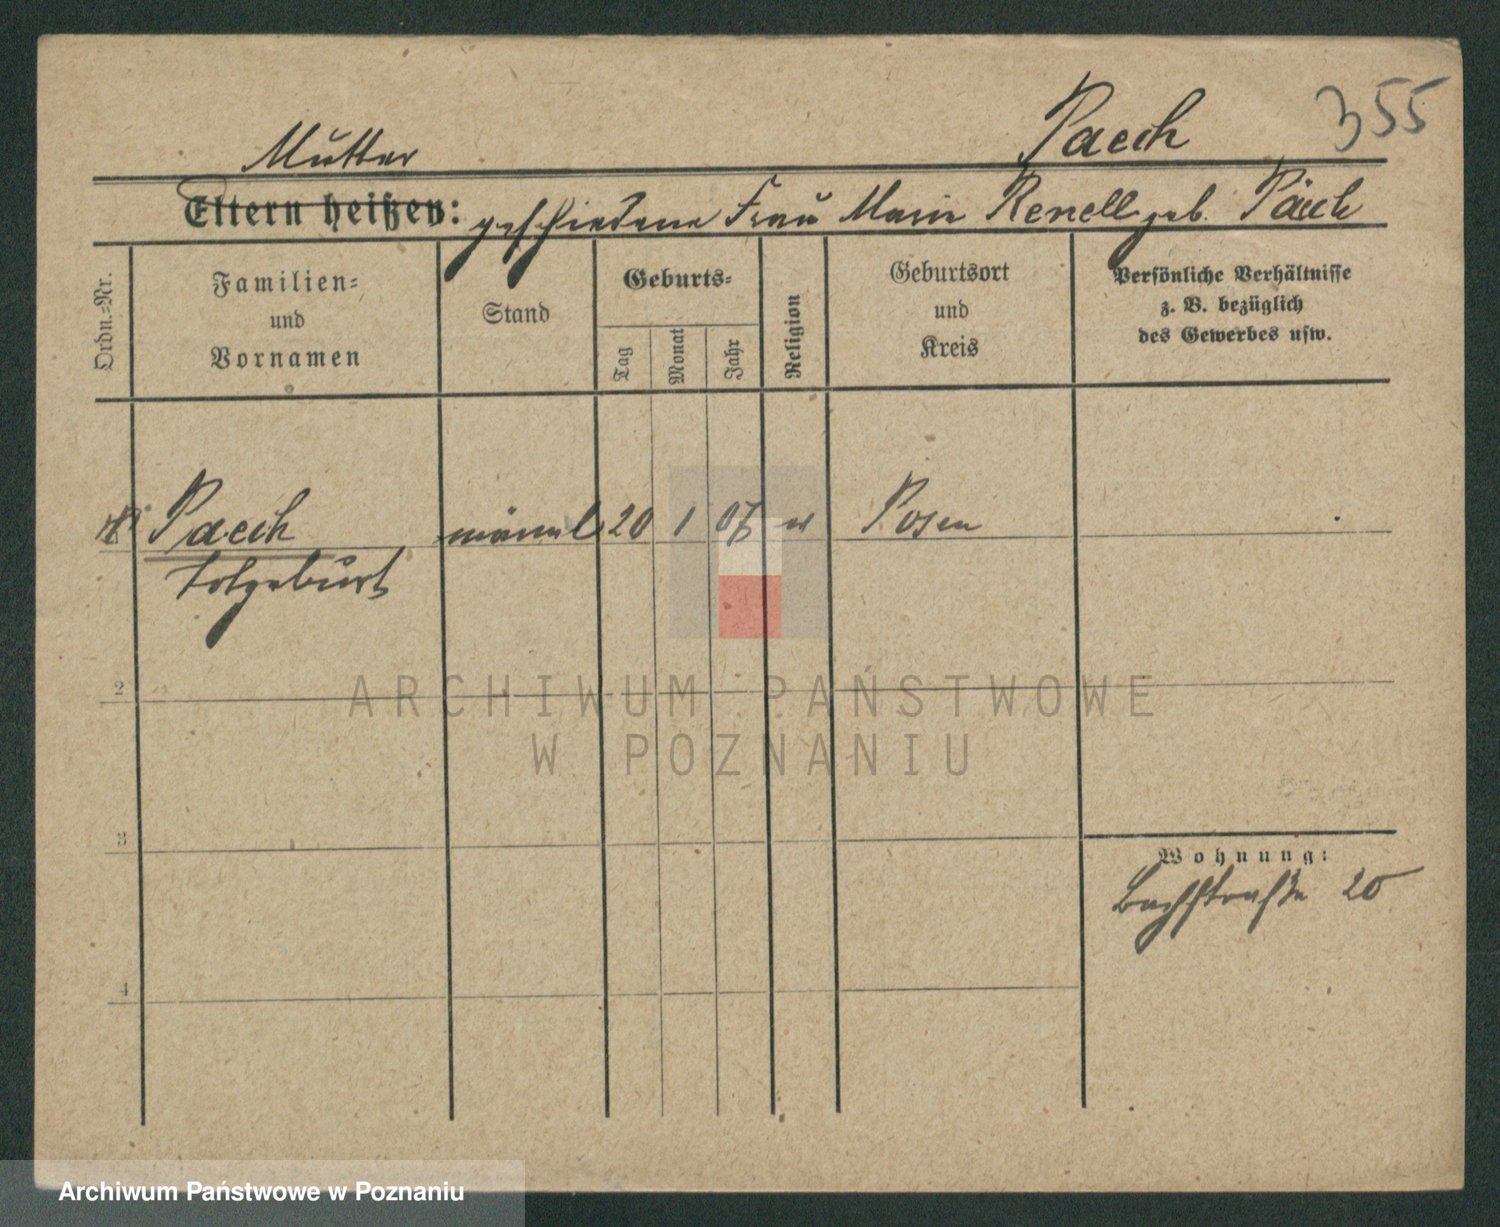 355
Paech
Mutter
Eltern heißen: geschiedene Frau Marie Renell geb. Päch
Ordn.-Nr.
Familien-
und
Vornamen
Stand
Geburts-
Tag
Monat
Jahr
Religion
Geburtsort
und
Kreis
Persönliche Verhältnisse
z. B. bezüglich
des Gewerbes usw.
Paech männl 20 1 07 Posen
totgeburt
2
3
4
Wohnung:
Bachstraße 20
ARCHIWUM PAŃSTWOWE
W POZNANIU
Archiwum Państwowe w Poznaniu